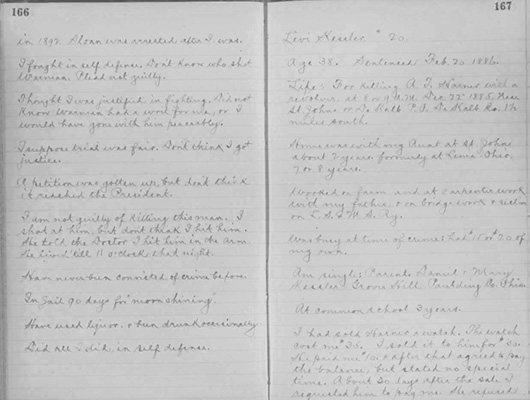 166
in 1892. Sloan was arrested after I was.
I fought in self defense. Dont know who shot
Warman. Plead not guilty.
Thought I was justified in fighting. Did not
know Warman had a wrt for me, or I
would have gone with him peaceably.
I suppose trial was fair. Don't think I got
justice.
A petition was gotten up, but don't think
it reached the President.
I am not guilty of killing this man. I
shot at him, but dont think I hit him.
He told the Doctor I hit him in the arm.
He lived till 11 o'clock that night.
Have never been convicted of crime before.
In Jail 90 days for "moon shining"
Have used liquor, & been drunk occasionally
Did all I did in self defense.
167
Levi Kessler # 20.
Age 38. Sentenced Feb. 20 1886.
Life: For killing A. T. Harner with a
revolver, at 8 or 9 A.M. Dec. 22 1885, near
St. Johns, or DeKalb P.O. DeKalb Co. 1½
miles south.
Home was with my Aunt at St. Johns
about 7 years, formerly at Lima Ohio,
7 or 8 years.
Worked on farm and at carpenter work
with my father, & on bridge work & section
on L. S. & M. S. Ry.
Was busy at time of crime: had 15 or 20 of
my own.
Am single: Parents Daniel & Mary
Kessler Grove Hill Paulding Co. Ohio.
At common school 3 years.
I had sold Harner a watch. The watch
cost me 35. I sold it to him for 50.
He paid me 10. & after that agreed to pay
the balance, but stated no special
time. About 30 days after the sale I
requested him to pay me. He refused